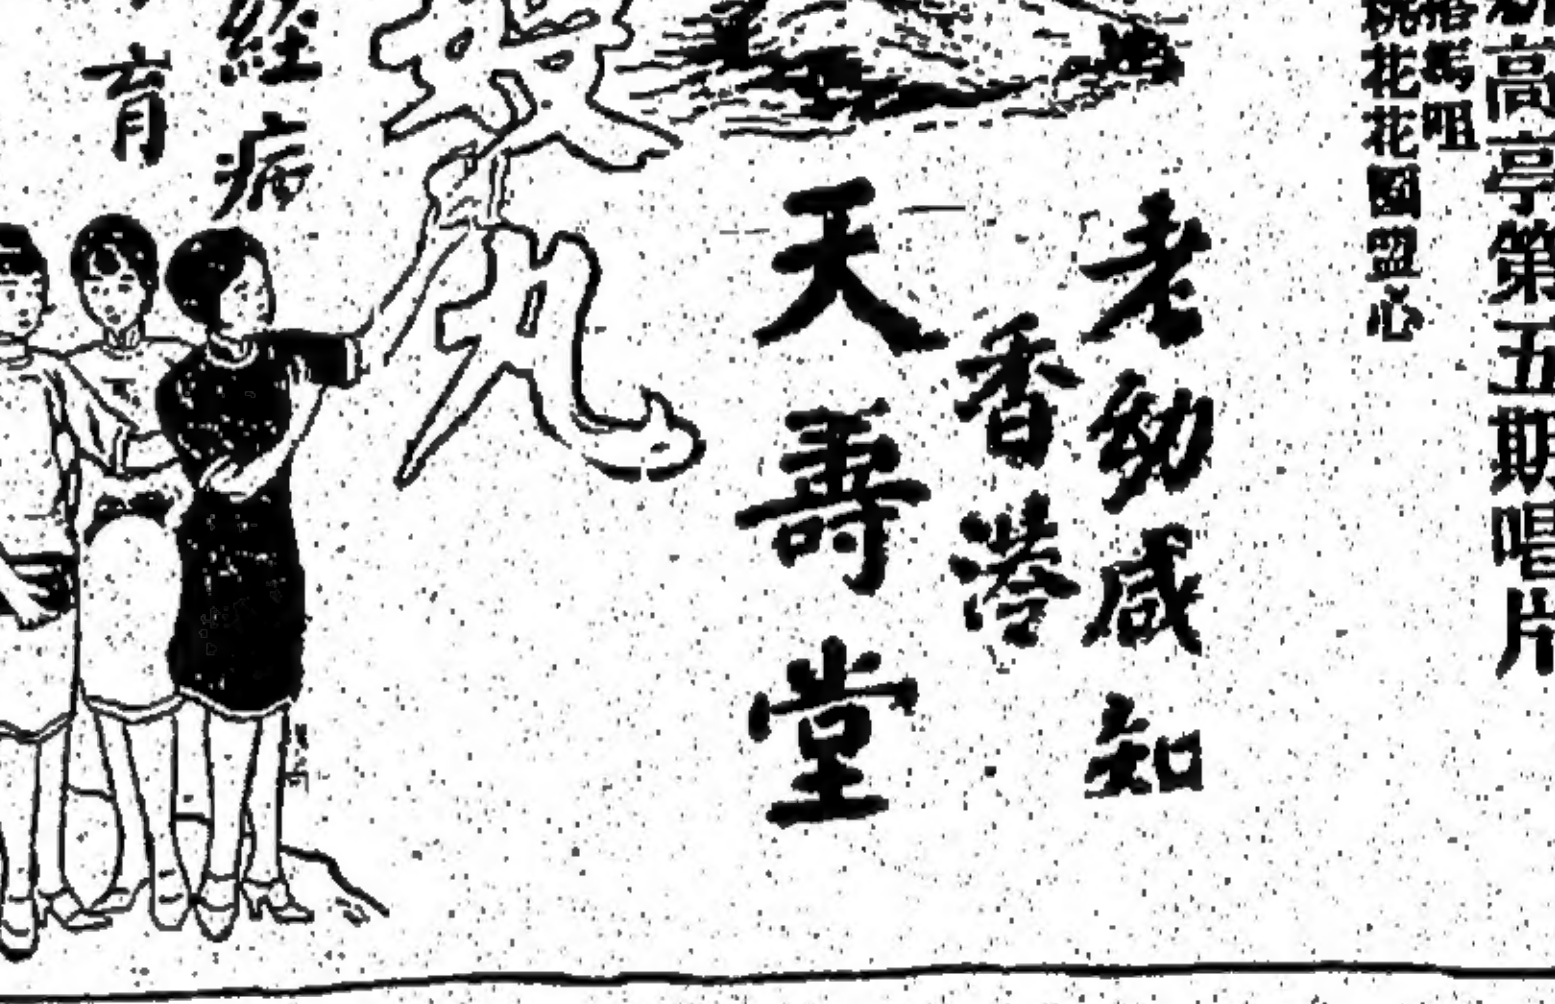 新高亭第五期唱片
馬咀
桃花花園盟心
老幼咸知
香港
天壽堂
丸
經病
育